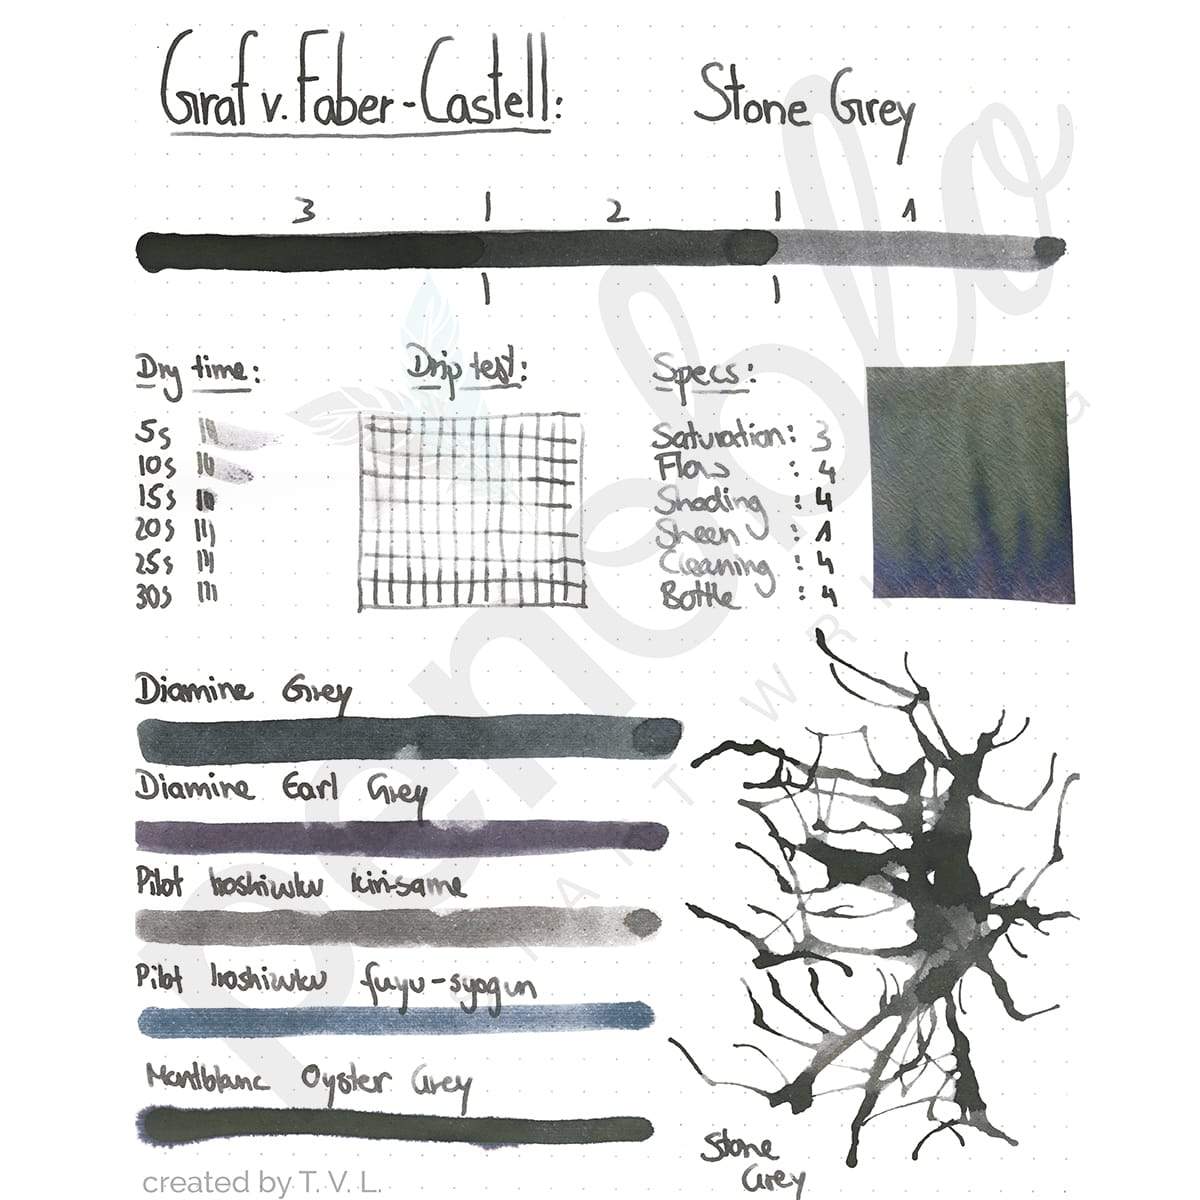 Graf v. Faber-Castell: Stone Grey
3 | 2 | 1
Dry time: Drip test: Specs:
5s
10s
15s
20s
25s
30s
Saturation: 3
Flow : 4
Shading : 4
Sheen : 1
Cleaning : 4
Bottle : 4
Diamine Grey
Diamine Earl Grey
Pilot Iroshizuku kiri-same
Pilot Iroshizuku fuyu-syogun
Montblanc Oyster Grey
Stone
Grey
created by T. V. L.
penoblo
START WRITING